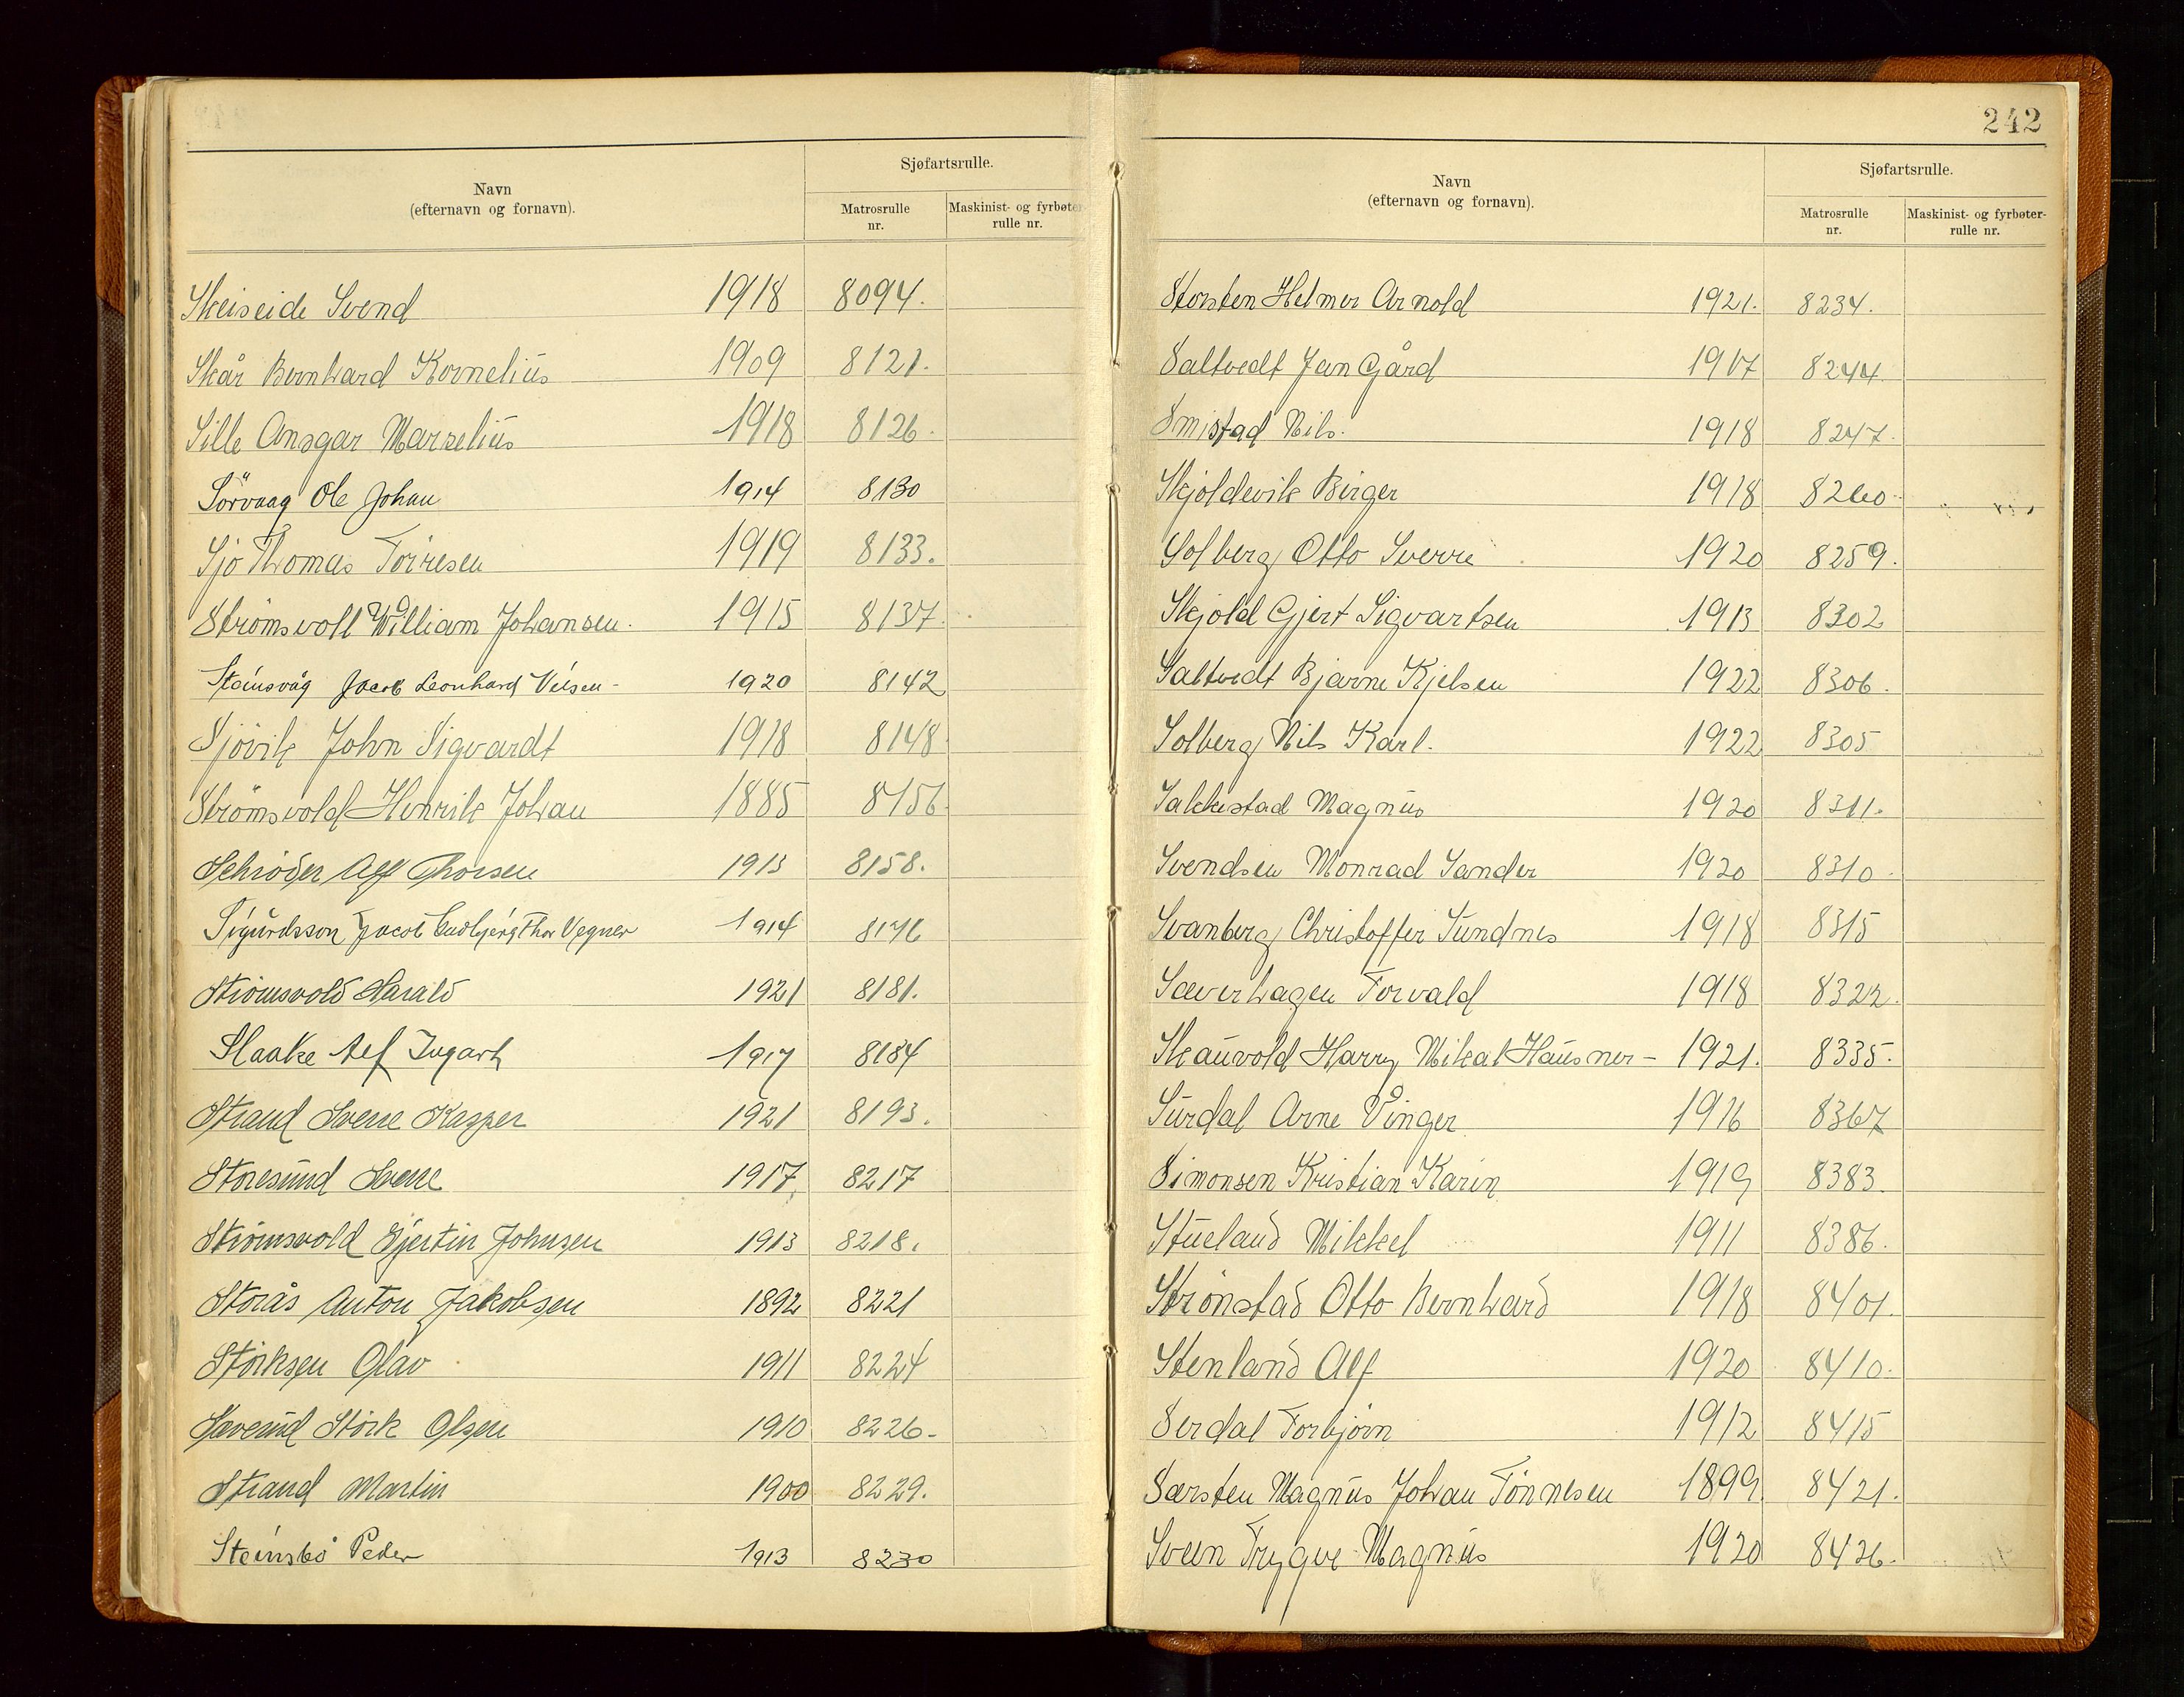 Navn
(efternavn og fornavn).
Sjøfartsrulle.
Matrosrulle nr.
Maskinist- og fyrbøter-rulle nr.
Skeiseide Svend 1918 8094.
Skår Bernhard Kornelius 1909 8121.
Sille Ansgar Marselius 1918 8126.
Sörvaag Ole Johan 1914 8130
Sjo Thomas Torresen 1919 8133.
Strømsvoll William Johansen. 1915 8137.
Steinsvåg Jacob Leonhard 1920 8142
Sjövik John Sigvardt 1918 8148
Strømsvold Henrik Johan 1885 8156
Schrøder Alf Thorsen 1913 8158.
Sigurdsson Jacob Gudbjørg Thor Vegner 1914
Strømsvold Harald 1921 8181.
Slaake Alf Ingart 1917 8184
Strand Sverre Kasper 1921 8193.
Storesund Sverre 1917. 8217
Strømsvold Gjertin Johnsen 1913 8218.
Storås Anton Jakobsen 1892 8221
Størksen Olav 1911 8224
Størk Olsen 1910 8226-
Strand Martin 1900 8229.
Steinsbø Peder 1913 8230
242
Navn
(efternavn og fornavn).
Sjøfartsrulle.
Matrosrulle nr.
Maskinist- og fyrbøter-rulle nr.
Storsten Helmer Arnold 1921. 8234.
Saltvedt Jan Gård 1917 8244
Smistad Nils. 1918 8247.
Skjoldevik Birger 1918
Solberg Otto Sverre 1920 8259.
Skjold Gjert Sigvartsen 1913 8302
Saltvedt Bjarne Kjelsen 1922 8306.
Solberg Nils Karl. 1922 8305
Salkkestad Magnus 1920 8311.
Svendsen Monrad Sander 1920 8310
Svanberg Christoffer Sundnes 1918 8315
Sæverhagen Torvald 1918 8322.
Skauvold Harry Mikal Hausner - 1921. 8335.
Surdal Arne Vinger 1916 8367
Simonsen Kristian Karin 1919 8383.
Stueland Mikkel 1911 8386.
Strönstad Otto Bernhard 1918 8401.
Stenland Alf 1920 8410.
Serdal Torbjørn 1912 8415
Sørsten Magnus Johan Tønnesen 1899. 8421.
Sveen Trygve Magnus 1920 8426.